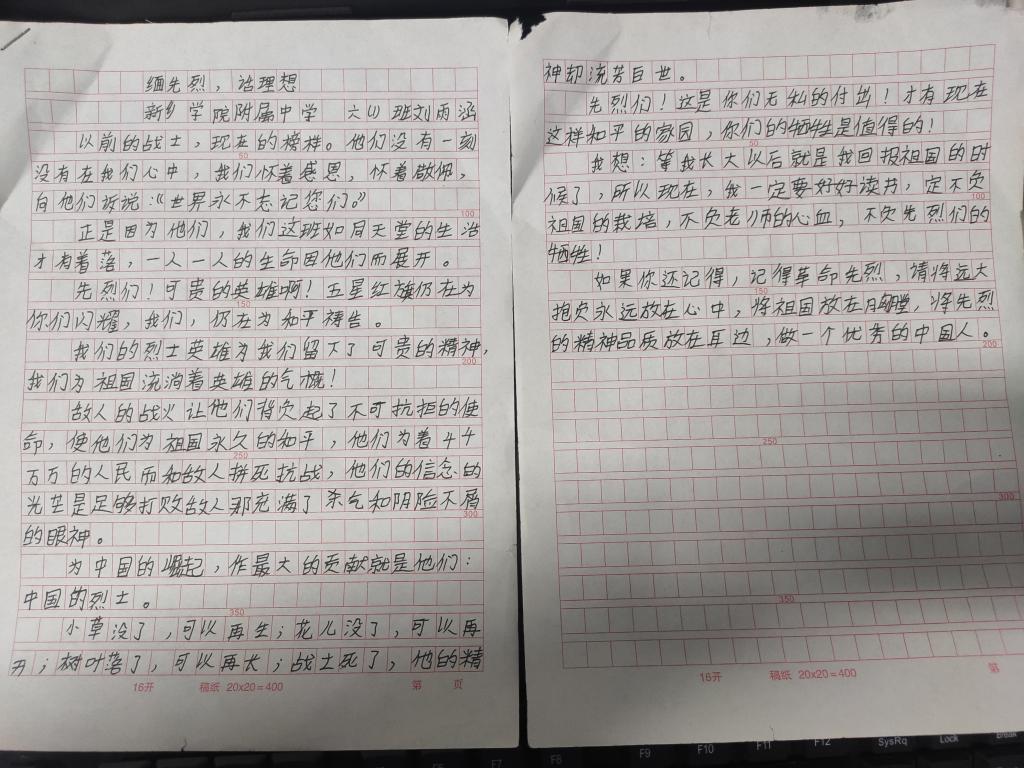 缅先烈，话理想
新乡学院附属中学 六(1)班刘雨涵
以前的战士，现在的榜样。他们没有一刻
没有在我们心中，我们怀着感恩，怀着敬仰，
向他们诉说：《世界永不忘记您们》
50
100
正是因为他们，我们这班如同天堂的生活
才有着落，一人一人的生命因他们而展开。
先烈们！可贵的英雄啊！五星红旗仍在为
你们闪耀，我们，仍在为和平祷告。
150
我们的烈士英雄为我们留下了可贵的精神，
我们为祖国流淌着英雄的气概！
200
敌人的战火让他们背负起了不可抗拒的使
命，使他们为祖国永久的和平，他们为着44
万万的人民而和敌人拼死抗战，他们的信念的
光芒是足够打败敌人那充满了杀气和阴险不屑
的眼神。
250
300
为中国的崛起，作最大的贡献就是他们：
中国的烈士。
350
小草没了，可以再生；花儿没了，可以再
开；树叶落了，可以再长；战士死了，他的精
16开 稿纸 20x20=400 第 页
神却流芳百世。
先烈们！这是你们无私的付出！才有现在
这样和平的家园，你们的牺牲是值得的！
50
我想：等我长大以后就是我回报祖国的时
候了，所以现在，我一定要好好读书，定不负
祖国的栽培，不负老师的心血，不负先烈们的
牺牲！
100
如果你还记得，记得革命先烈，请将远大
抱负永远放在心中，将祖国放在胸膛，将先烈
的精神品质放在耳边，做一个优秀的中国人。
150
200
250
300
350
16开 稿纸 20x20=400 第
F9 F10 F11 F12 SysRq Lock Break